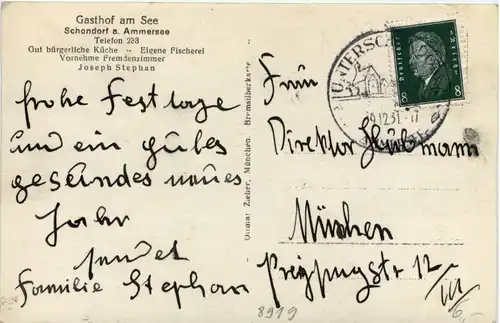 Gasthof am See
Schondorf a. Ammersee
Telefon 253
Gut bürgerliche Küche – Eigene Fischerei
Vornehme Fremdenzimmer
Joseph Stephan
frohe Festtage
und ein gutes
gesundes neues
Jahr
sendet
Familie Stephan
Ottmar Zieher, München. Bromsilberkarte
UNTERSCH
29.12.31.-17
Deutsches Reich
8 8
Frau
Direktor
München
12
III
8919
6,-